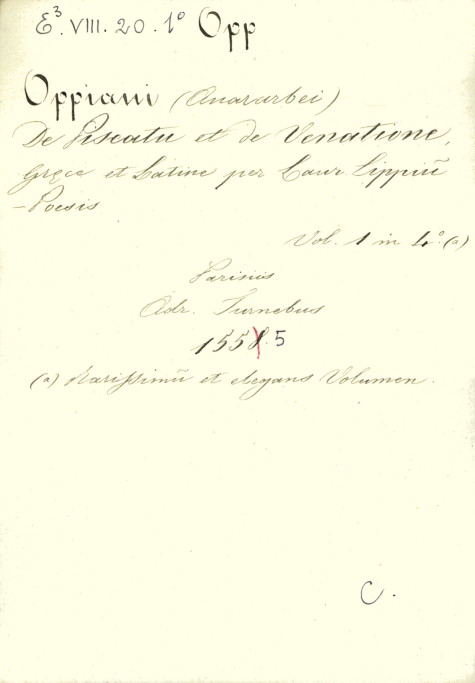 E³. VIII. 20. 1° Opp
Oppiani (Anararbei)
De Piscatu et de Venatione,
Gręce et Latine per Laur. Lippiū
- Poesis
Vol. 1 in 4.° (a)
Parisiis
Adr. Turnebus
1558. 5
(a) Rarissimū et elegans Volumen.
C.